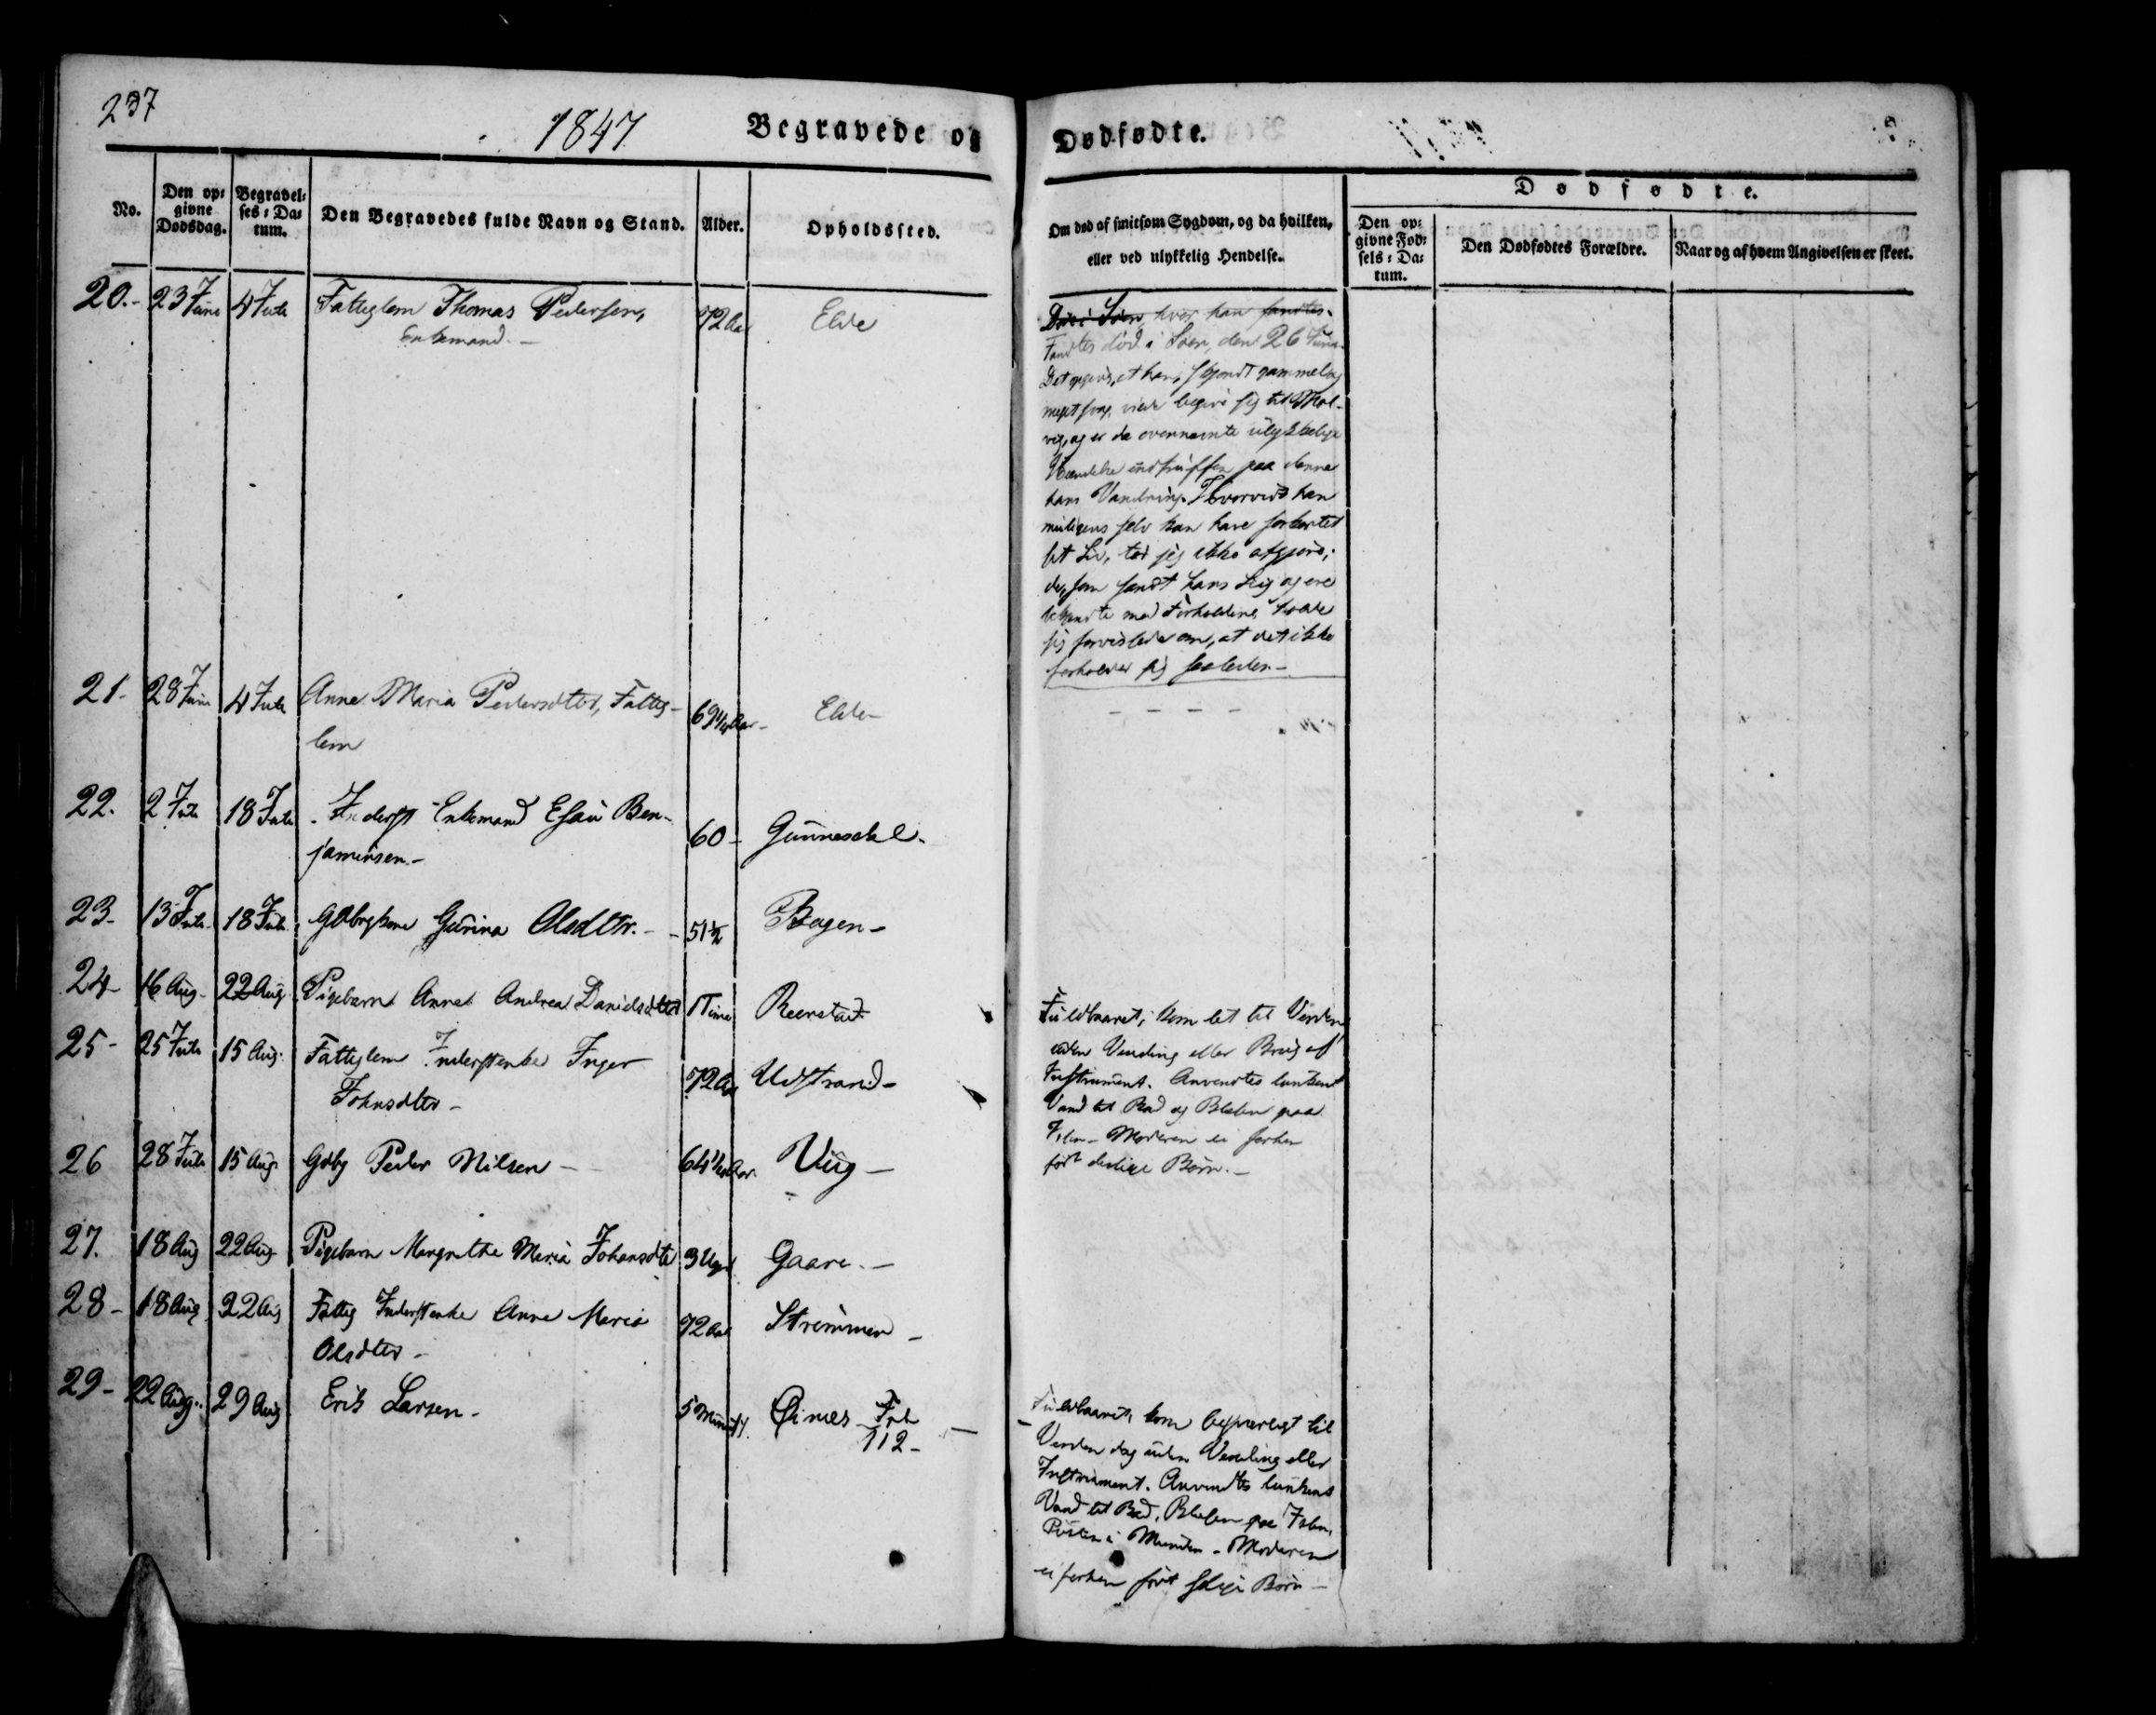 237
1847
Begravede og
Dødfødte.
No.
Den op-
givne
Dødsdag.
Begravel-
ses-Da-
tum.
Den Begravedes fulde Navn og Stand.
Alder.
Opholdssted.
Om død af smitsom Sygdom, og da hvilken,
eller ved ulykkelig Hendelse.
Dødfødte.
Den op-
givne Fød-
sels-Da-
tum.
Den Dødfødtes Forældre.
Naar og af hvem Angivelsen er skeet.
20.- 23 Juni 4 Juli Fattiglem Thomas Pedersen, 72 Aar Elde
Enkemand.-
hvor han fandtes.
Fandtes død i Søen, den 26 Juni.
Det opgives, at han,
meget svag, vilde begive sig til
og er da ovennævnte ulykkelige
Hændelse indtruffen paa denne
hans Vandring. Hvorvidt han
muligens selv kan have forkortet
sit Liv, tør jeg ikke afgjøre;
de, som fandt hans Liig og ere
bekjendte med Forholdene, holde
sig forvissede om, at det ikke
forholder sig saaledes.-
21- 28 Juni 4 Juli Anne Maria Pedersdtr, Fattig- 69 Aar- Elde-
lem
22. 2 Juli 18 Juli Inderst Enkemand Esau Ben- 60- Gunnesdal.
jaminsen.-
23- 13 Juli 18 Juli Gdbrgkone Gurina Olsdtr.- 51½ Bogen-
24- 16 Aug- 22 Aug Pigebarn Anne Andrea Danielsdtr 1 Time Reenstad
25- 25 Juli 15 Aug. Fattiglem Inderstenke Inger 72 Aar Udstrand-
Johnsdtr-
Fuldbaaret, kom let til Verden
uden Vending eller Brug af
Instrument. Anvendtes lunkent
Vand til Bad og Blesten paa
Moderen ei forhen
født deslige Børn.-
26 28 Juli 15 Aug. Gdbg Peder Nilsen- 64 Aar.
27. 18 Aug 22 Aug Pigebarn Margrethe Maria Johansdtr 3 Uger Gaare.-
28- 18 Aug 22 Aug Fattig Inderstenke Anne Maria 72 Aar Strømmen-
Olsdtr-
29- 22 Aug. 29 Aug Erik Larsen- 5 Minutter Øines
112-
Fuldbaaret, kom besværligt til
Verden dog uden Vending eller
Instrument. Anvendtes lunkent
Vand til Bad,
Pusten i Munden- Moderen
ei forhen født Børn-